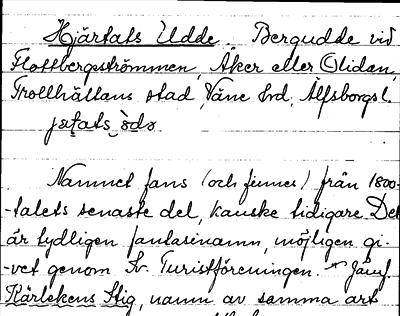 Hjärtats Udde. Bergudde vid
Flottbergströmmen, Åker eller Olidan,
Trollhättans stad, Väne hd, Älfsborgs l.
jaṭats ùdə
Namnet fans (och finnes) från 1800-
-talets senaste del, kanske tidigare. Det
är tydligen fantasinamn, möjligen gi-
-vet genom Sv. Turistföreningen. Jämf.
Kärlekens Stig, namn av samma art